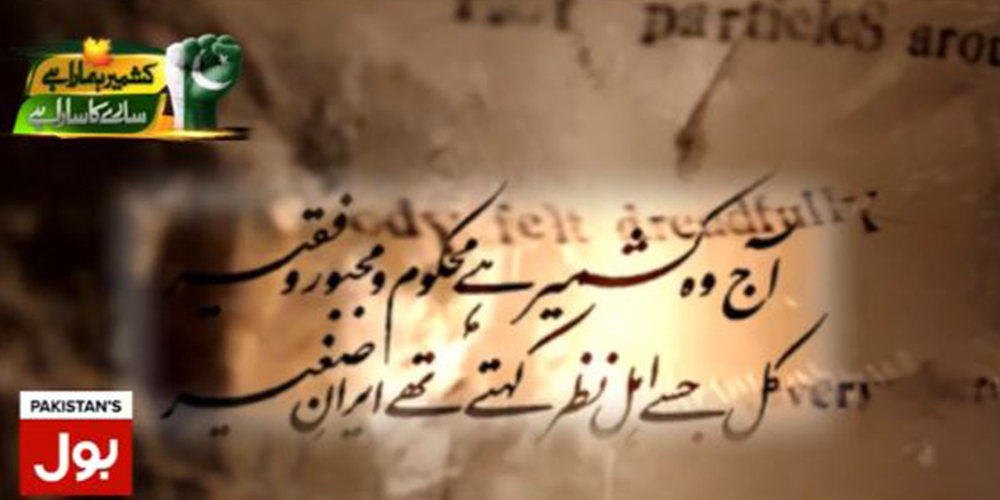 particles arou
کشمیر ہمارا ہے
سارے کا سارا ہے
ody felt dreadfully
آج وہ کشمیر ہے محکوم و مجبور و فقیر
کل جسے اہل نظر کہتے تھے ایرانِ صغیر
very
PAKISTAN'S
بول